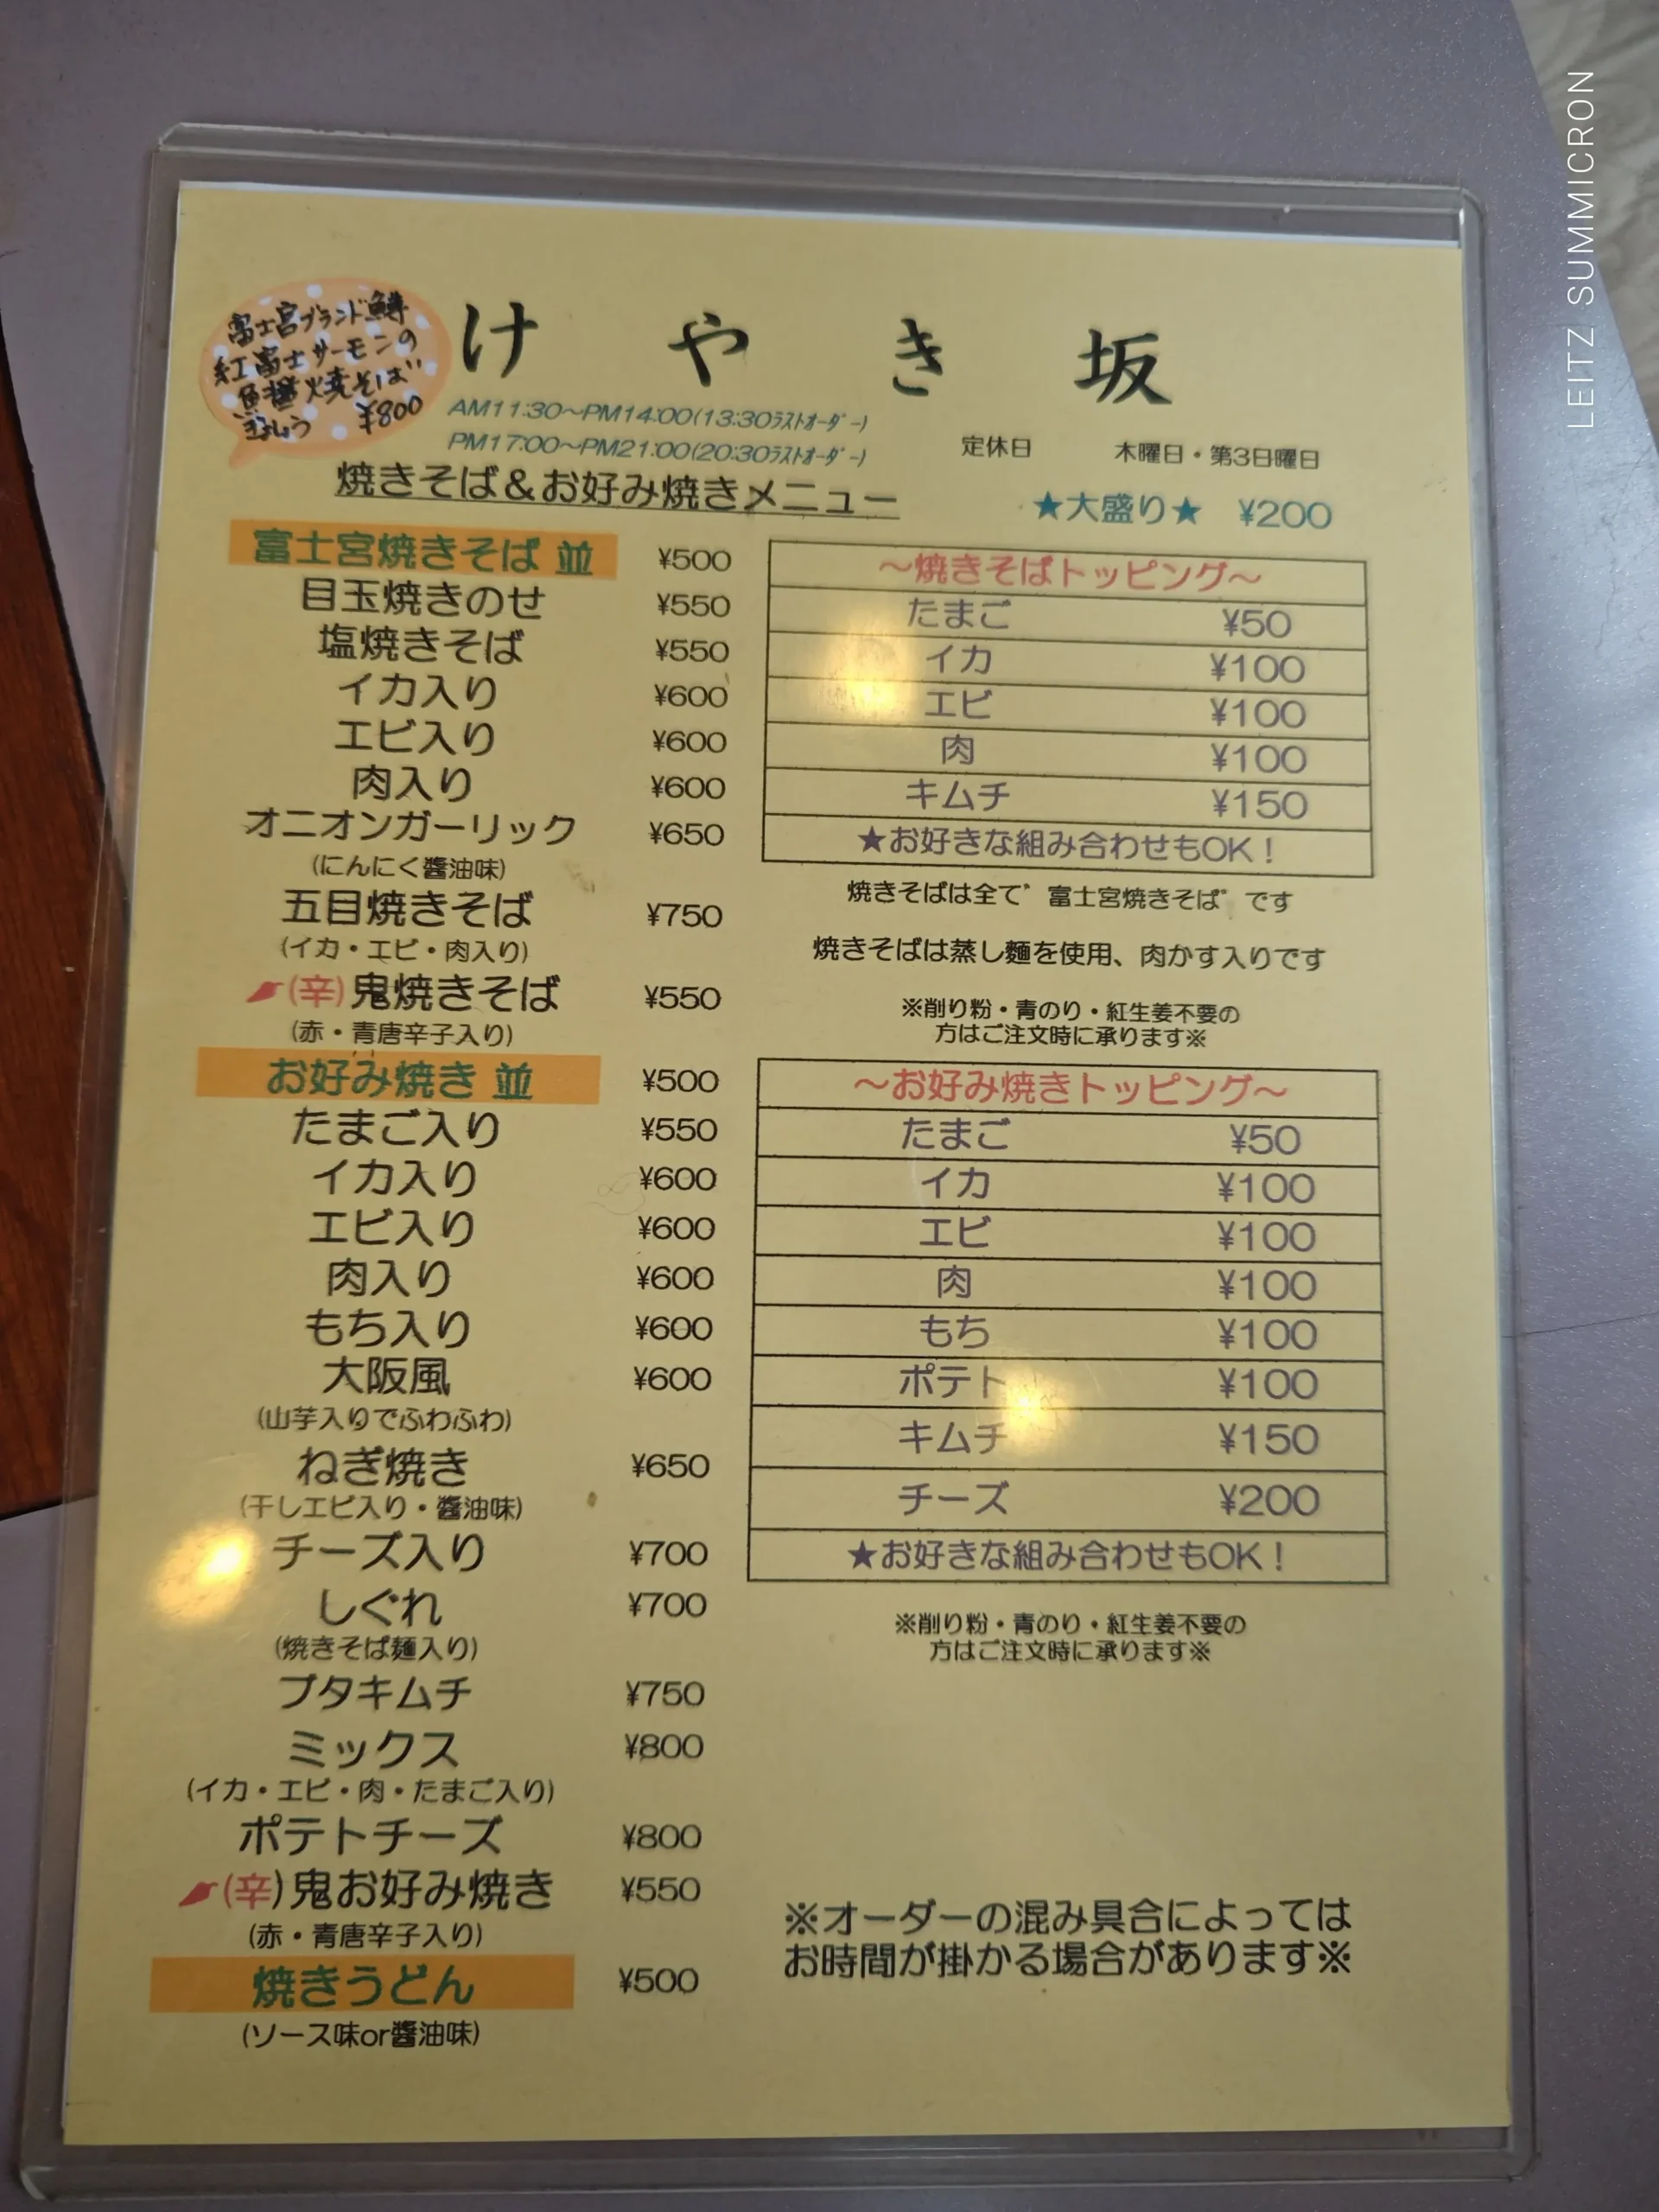 富士宮ブランド鱒
紅富士サーモンの
焼そば
¥800
けやき坂
AM11:30～PM14:00(13:30ﾗｽﾄｵｰﾀﾞｰ)
PM17:00～PM21:00(20:30ﾗｽﾄｵｰﾀﾞｰ)
定休日 木曜日・第3日曜日
焼きそば＆お好み焼きメニュー
★大盛り★ ¥200
富士宮焼きそば 並 ¥500
目玉焼きのせ ¥550
塩焼きそば ¥550
イカ入り ¥600
エビ入り ¥600
肉入り ¥600
オニオンガーリック ¥650
(にんにく醬油味)
五目焼きそば ¥750
(イカ・エビ・肉入り)
(辛)鬼焼きそば ¥550
(赤・青唐辛子入り)
お好み焼き 並 ¥500
たまご入り ¥550
イカ入り ¥600
エビ入り ¥600
肉入り ¥600
もち入り ¥600
大阪風 ¥600
(山芋入りでふわふわ)
ねぎ焼き ¥650
(干しエビ入り・醬油味)
チーズ入り ¥700
しぐれ ¥700
(焼きそば麺入り)
ブタキムチ ¥750
ミックス ¥800
(イカ・エビ・肉・たまご入り)
ポテトチーズ ¥800
(辛)鬼お好み焼き ¥550
(赤・青唐辛子入り)
焼きうどん ¥500
(ソース味or醬油味)
～焼きそばトッピング～
たまご ¥50
イカ ¥100
エビ ¥100
肉 ¥100
キムチ ¥150
★お好きな組み合わせもOK！
焼きそばは全て゛富士宮焼きそば゛です
焼きそばは蒸し麺を使用、肉かす入りです
※削り粉・青のり・紅生姜不要の
方はご注文時に承ります※
～お好み焼きトッピング～
たまご ¥50
イカ ¥100
エビ ¥100
肉 ¥100
もち ¥100
ポテト ¥100
キムチ ¥150
チーズ ¥200
★お好きな組み合わせもOK！
※削り粉・青のり・紅生姜不要の
方はご注文時に承ります※
※オーダーの混み具合によっては
お時間が掛かる場合があります※
LEITZ SUMMICRON